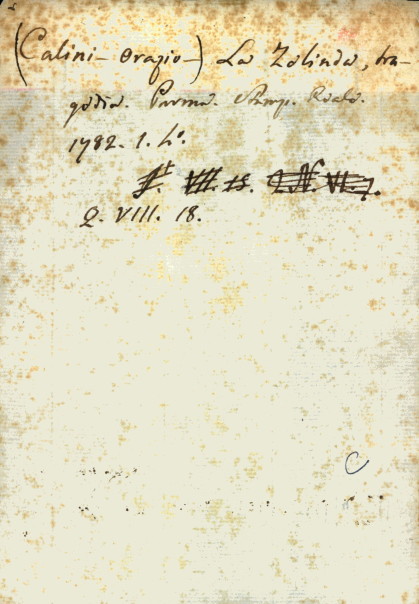 (Calini - Orazio -) La Zelinda, tra-
gedia. Parma. Stamp. Reale.
1782. 1. 4°.
VIII. 18. VI. 7.
Q. VIII. 18.
C